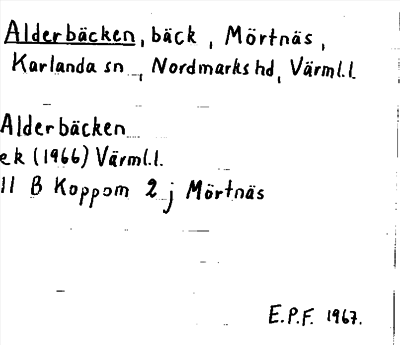 Alderbäcken, bäck, Mörtnäs,
Karlanda sn, Nordmarks hd, Värml.l.
Alderbäcken
ek (1966) Värml.l.
11 B Koppom 2 j Mörtnäs
E.P.F. 1967.